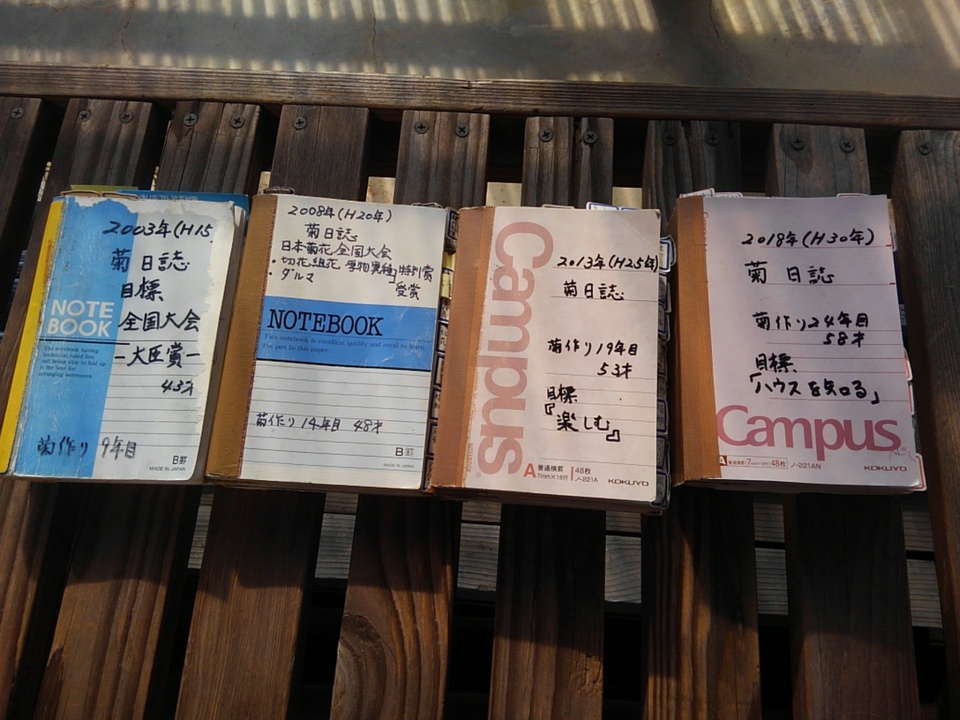 2003年(H15
菊日誌
目標
全国大会
―大臣賞―
43才
NOTE
BOOK
菊作り 9年目
B罫
MADE IN JAPAN
2008年(H20年)
菊日誌
日本菊花全国大会
・切花、組花、厚物異種」特別賞
・ダルマ
受賞
NOTEBOOK
This notebook is excellent quality and
菊作り14年目 48才
B罫
MADE IN JAPAN
Campus
2013年(H25年)
菊日誌
菊作り19年目
53才
目標
『楽しむ』
A 普通横罫 48枚
7mm×18行 ノ-221A
KOKUYO
2018年(H30年)
菊 日誌
菊作り24年目
58才
目標
「ハウスを知る」
Campus
A 普通横罫 7mm×18行 48枚 ノ-221AN
KOKUYO